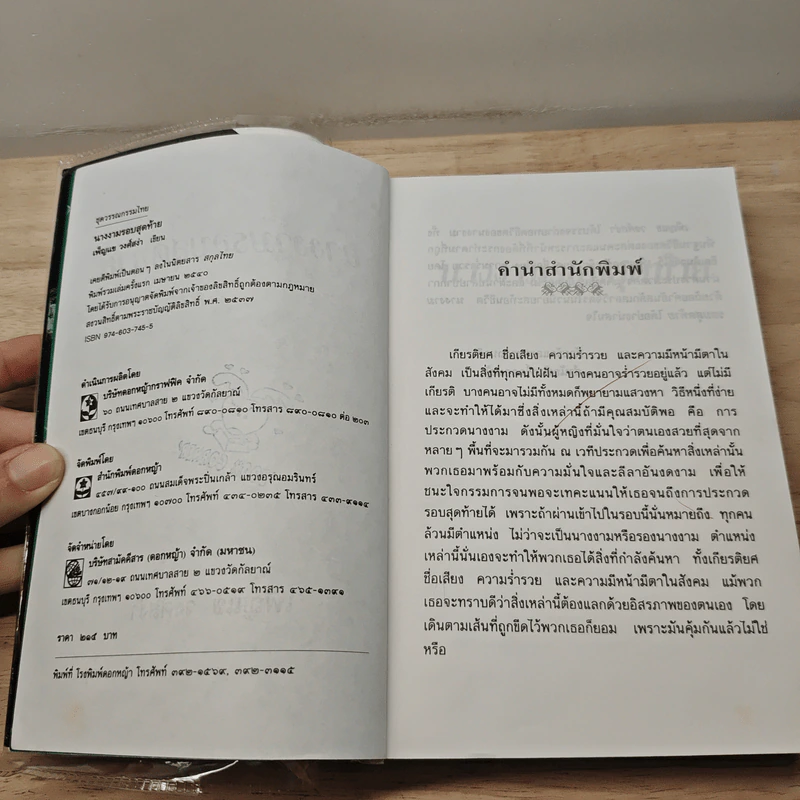 ชุดวรรณกรรมไทย
นางงามรอบสุดท้าย
เพ็ญแข วงศ์สง่า เขียน
เคยตีพิมพ์เป็นตอน ๆ ลงในนิตยสาร สกุลไทย
พิมพ์รวมเล่มครั้งแรก เมษายน ๒๕๔๐
โดยได้รับการอนุญาตจัดพิมพ์จากเจ้าของลิขสิทธิ์ถูกต้องตามกฎหมาย
สงวนลิขสิทธิ์ตามพระราชบัญญัติลิขสิทธิ์ พ.ศ. ๒๕๓๗
ISBN 974-603-745-5
ดำเนินการผลิตโดย
บริษัทดอกหญ้ากราฟฟิค จำกัด
๖๐ ถนนเทศบาลสาย ๒ แขวงวัดกัลยาณ์
เขตธนบุรี กรุงเทพฯ ๑๐๖๐๐ โทรศัพท์ ๘๙๐-๐๘๑๐ โทรสาร ๘๙๐-๐๘๑๐ ต่อ ๒๐๓
จัดพิมพ์โดย
สำนักพิมพ์ดอกหญ้า
๔๕๓/๙๙-๑๐๐ ถนนสมเด็จพระปิ่นเกล้า แขวงอรุณอมรินทร์
เขตบางกอกน้อย กรุงเทพฯ ๑๐๗๐๐ โทรศัพท์ ๔๓๔-๐๒๓๕ โทรสาร ๔๓๓-๙๑๑๔
จัดจำหน่ายโดย
บริษัทสามัคคีสาร (ดอกหญ้า) จำกัด (มหาชน)
๓๑/๑๒-๑๙ ถนนเทศบาลสาย ๒ แขวงวัดกัลยาณ์
เขตธนบุรี กรุงเทพฯ ๑๐๖๐๐ โทรศัพท์ ๔๖๖-๐๕๑๙ โทรสาร ๔๖๕-๑๓๙๑
ราคา ๒๑๕ บาท
พิมพ์ที่ โรงพิมพ์ดอกหญ้า โทรศัพท์ ๓๙๒-๑๕๖๙, ๓๙๒-๓๑๑๕
คำนำสำนักพิมพ์
เกียรติยศ ชื่อเสียง ความร่ำรวย และความมีหน้ามีตาใน
สังคม เป็นสิ่งที่ทุกคนใฝ่ฝัน บางคนอาจร่ำรวยอยู่แล้ว แต่ไม่มี
เกียรติ บางคนอาจไม่มีทั้งหมดก็พยายามแสวงหา วิธีหนึ่งที่ง่าย
และจะทำให้ได้มาซึ่งสิ่งเหล่านี้ถ้ามีคุณสมบัติพอ คือ การ
ประกวดนางงาม ดังนั้นผู้หญิงที่มั่นใจว่าตนเองสวยที่สุดจาก
หลาย ๆ พื้นที่จะมารวมกัน ณ เวทีประกวดเพื่อค้นหาสิ่งเหล่านั้น
พวกเธอมาพร้อมกับความมั่นใจและลีลาอันงดงาม เพื่อให้
ชนะใจกรรมการจนพอจะเทคะแนนให้เธอจนถึงการประกวด
รอบสุดท้ายได้ เพราะถ้าผ่านเข้าไปในรอบนี้นั่นหมายถึง ทุกคน
ล้วนมีตำแหน่ง ไม่ว่าจะเป็นนางงามหรือรองนางงาม ตำแหน่ง
เหล่านี้นั่นเองจะทำให้พวกเธอได้สิ่งที่กำลังค้นหา ทั้งเกียรติยศ
ชื่อเสียง ความร่ำรวย และความมีหน้ามีตาในสังคม แม้พวก
เธอจะทราบดีว่าสิ่งเหล่านี้ต้องแลกด้วยอิสรภาพของตนเอง โดย
เดินตามเส้นที่ถูกขีดไว้พวกเธอก็ยอม เพราะมันคุ้มกันแล้วไม่ใช่
หรือ